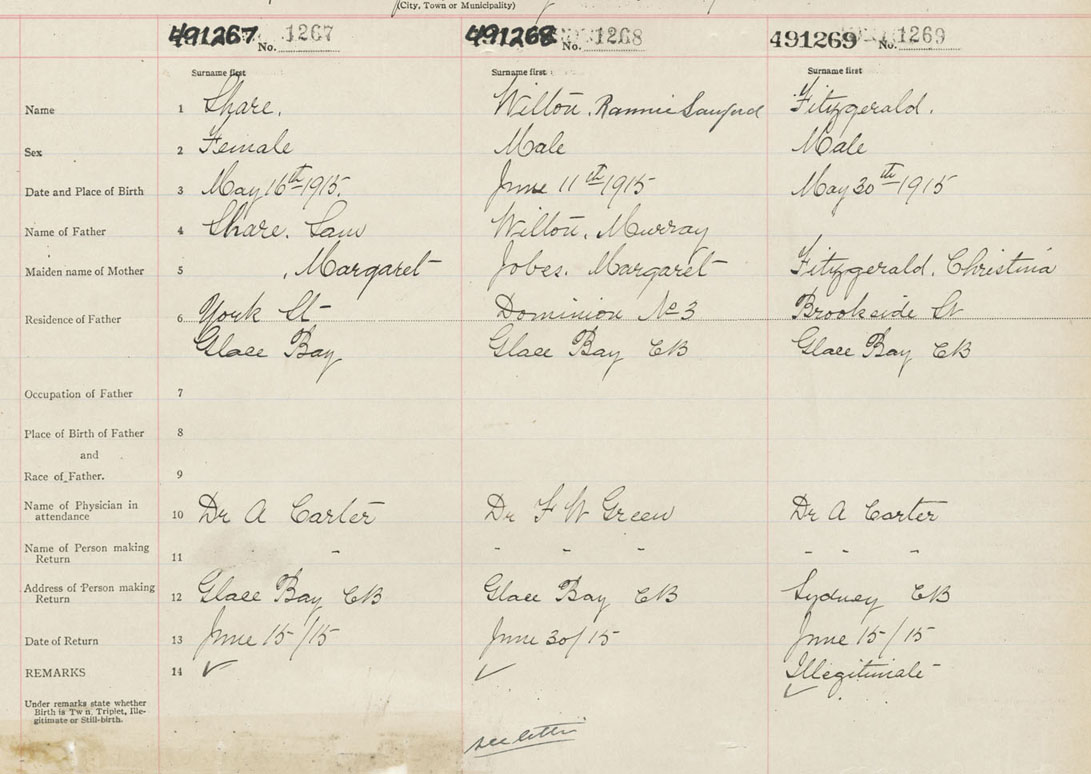 (City, Town or Municipality)
491267 No. 1267 491268 No. 1268 491269 No. 1269
Surname first Surname first Surname first
Name 1 Share. Wilton, Rannie Sanford Fitzgerald.
Sex 2 Female Male Male
Date and Place of Birth 3 May 16th 1915. June 11th 1915 May 30th 1915
Name of Father 4 Share. Sam Wilton, Murray
Maiden name of Mother 5 , Margaret Jobes. Margaret Fitzgerald, Christina
Residence of Father 6 York St Dominion No 3 Brookside St
Glace Bay Glace Bay CB Glace Bay CB
Occupation of Father 7
Place of Birth of Father 8
and
Race of Father. 9
Name of Physician in
attendance 10 Dr A Carter Dr F W Green Dr A Carter
Name of Person making
Return 11 - - - - - - -
Address of Person making
Return 12 Glace Bay CB Glace Bay CB Sydney CB
Date of Return 13 June 15/15 June 30/15 June 15/15
REMARKS 14 ✓ ✓ Illegitimate
✓
Under remarks state whether
Birth is Twin, Triplet, Ille-
gitimate or Still-birth.
see letter